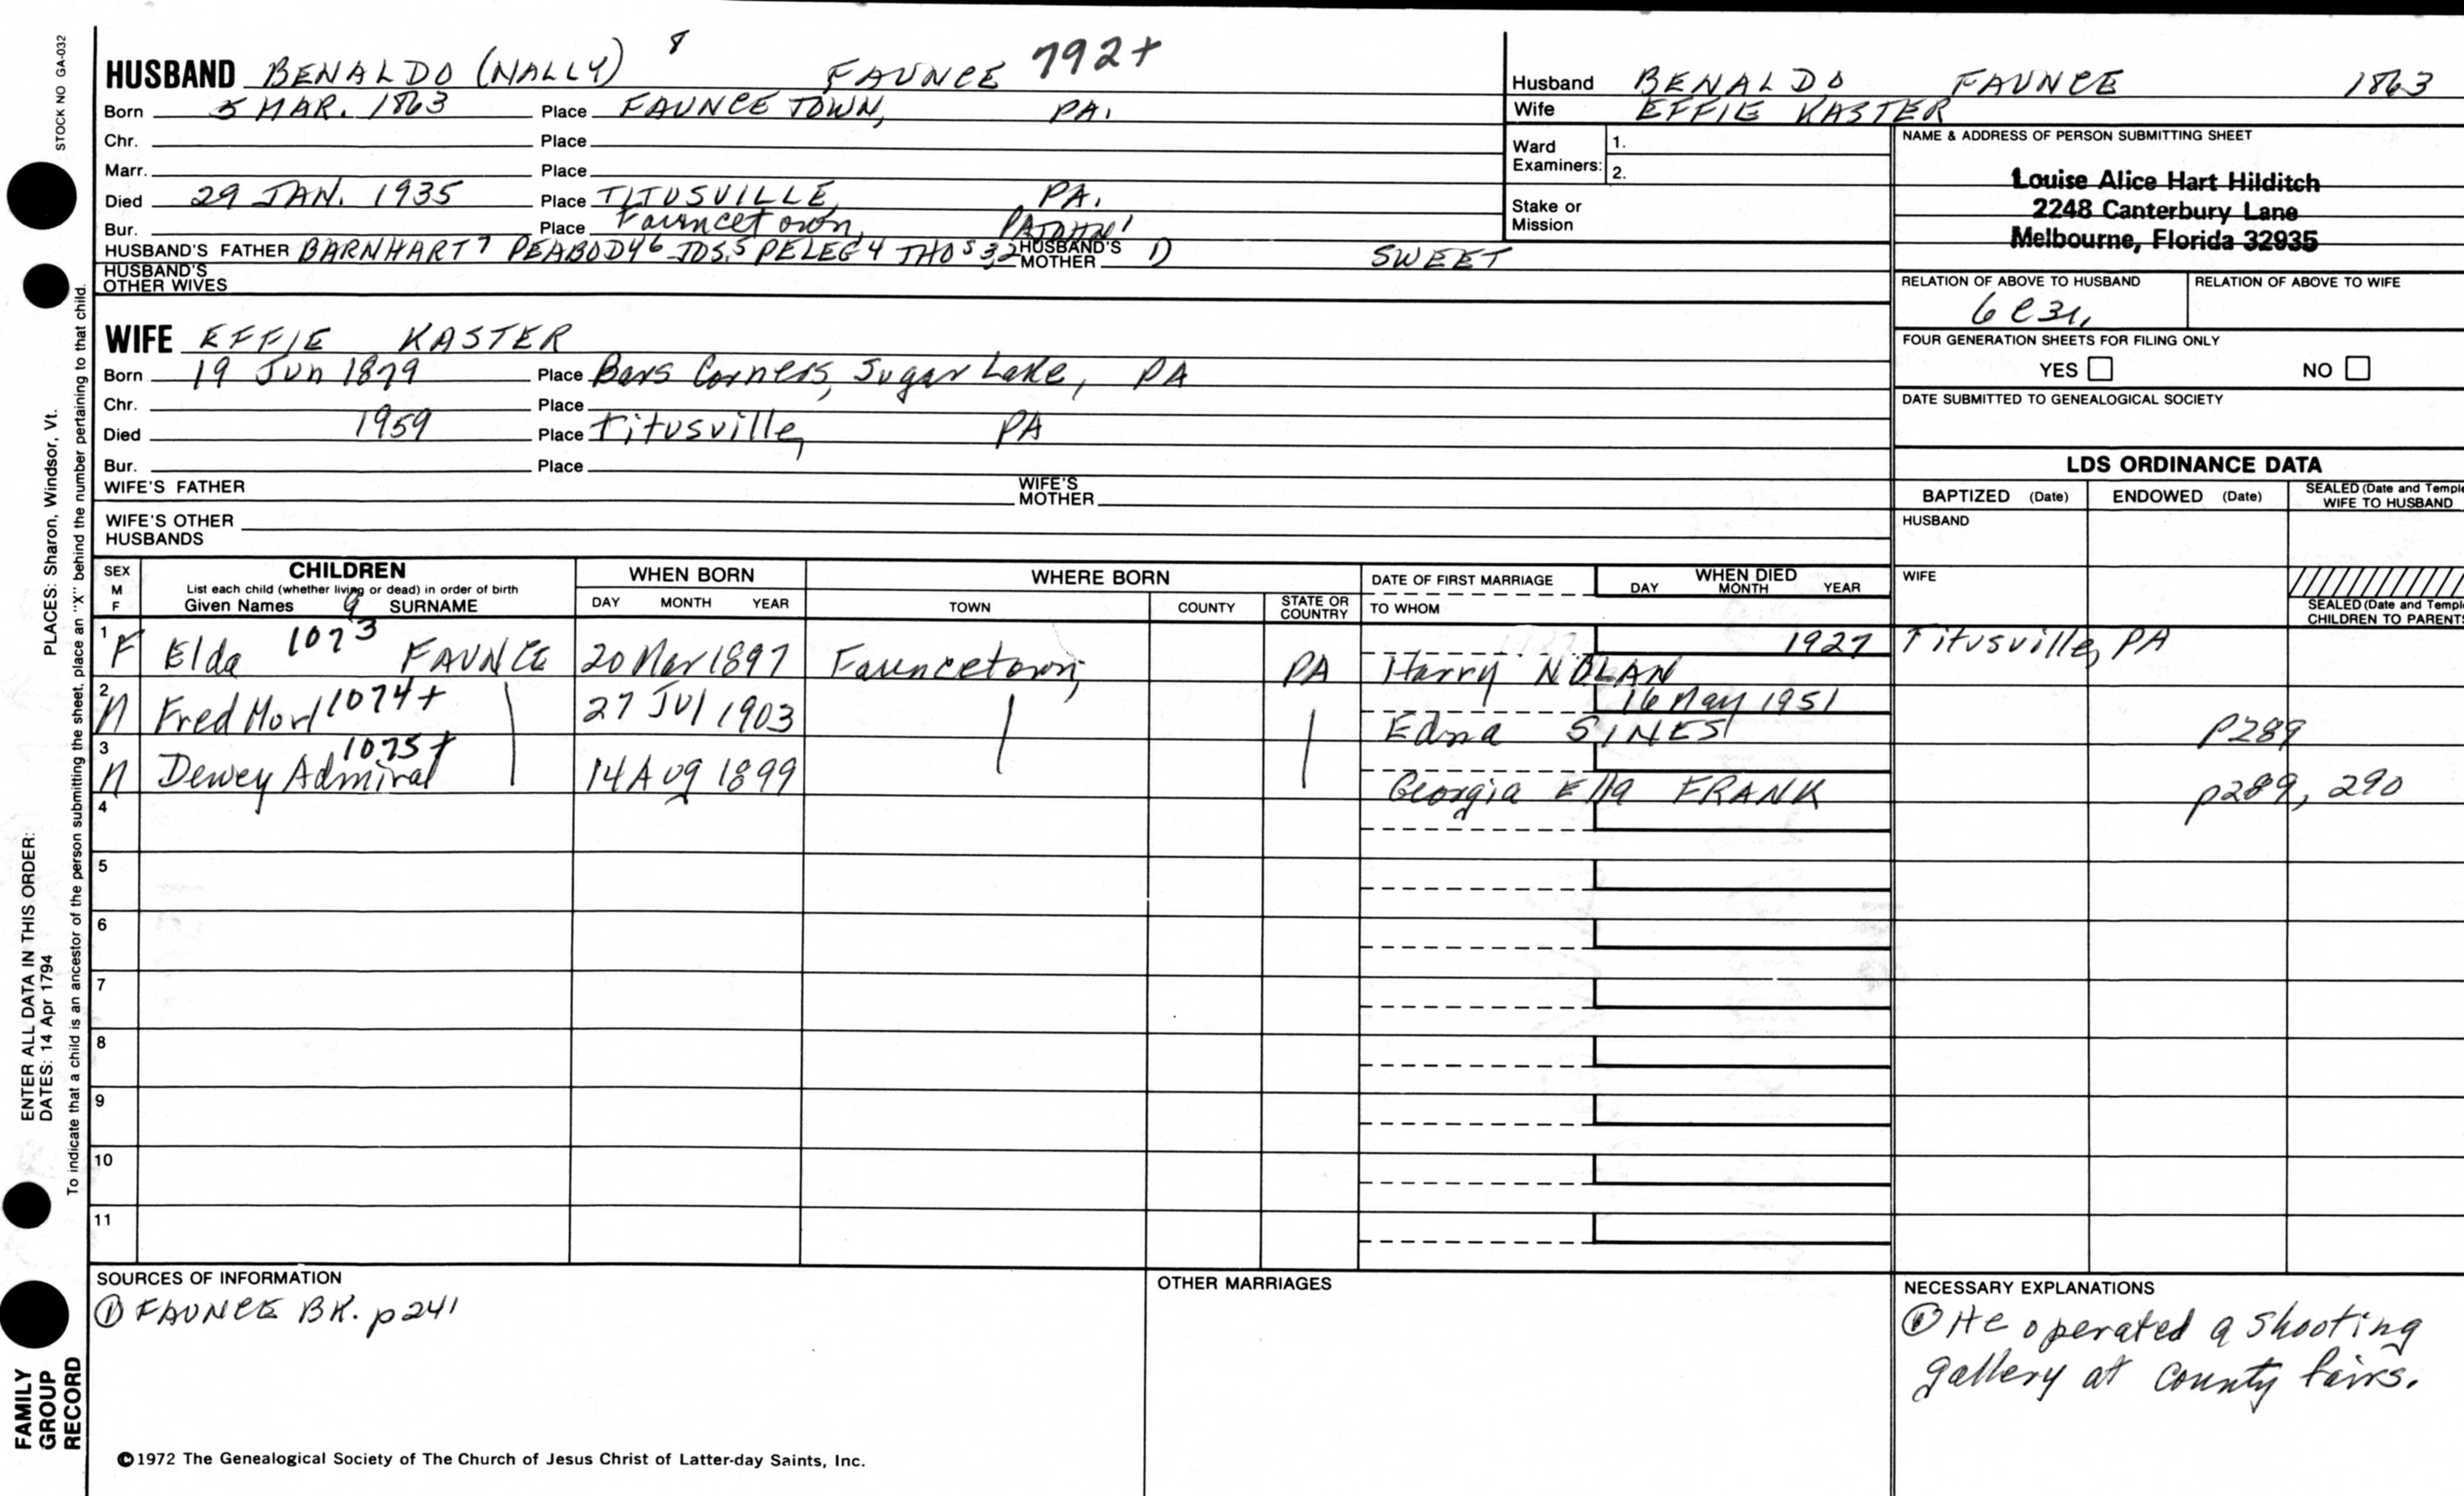 STOCK NO GA-032
HUSBAND BENALDO (NALLY) 8 FAUNCE 792+
Born 5 MAR. 1863 Place FAUNCE TOWN, PA.
Chr. Place
Marr. Place
Died 29 JAN. 1935 Place TITUSVILLE, PA.
Bur. Place Fauncetown, PA
HUSBAND'S FATHER BARNHART 7 PEABODY 6 JOS. 5 PELEG 4 THOS 3,2 JOHN 1 HUSBAND'S MOTHER 1) SWEET
HUSBAND'S OTHER WIVES
WIFE EFFIE KASTER
Born 19 Jun 1879 Place Bars Corners, Sugar Lake, PA
Chr. Place
Died 1959 Place Titusville, PA
Bur. Place
WIFE'S FATHER WIFE'S MOTHER
WIFE'S OTHER HUSBANDS
Husband BENALDO FAUNCE 1863
Wife EFFIE KASTER
Ward Examiners: 1.
2.
Stake or Mission
NAME & ADDRESS OF PERSON SUBMITTING SHEET
Louise Alice Hart Hilditch
2248 Canterbury Lane
Melbourne, Florida 32935
RELATION OF ABOVE TO HUSBAND RELATION OF ABOVE TO WIFE
FOUR GENERATION SHEETS FOR FILING ONLY
YES NO
DATE SUBMITTED TO GENEALOGICAL SOCIETY
LDS ORDINANCE DATA
BAPTIZED (Date) ENDOWED (Date) SEALED (Date and Temple WIFE TO HUSBAND
HUSBAND
WIFE
SEALED (Date and Templ CHILDREN TO PARENTS
SEX M F CHILDREN WHEN BORN WHERE BORN DATE OF FIRST MARRIAGE WHEN DIED
List each child (whether living or dead) in order of birth
Given Names 9 SURNAME DAY MONTH YEAR TOWN COUNTY STATE OR COUNTRY TO WHOM DAY MONTH YEAR
1 F Elda 1073 FAUNCE 20 Mar 1897 Fauncetown, PA Harry NOLAN 1927 Titusville, PA
2 M Fred Morl 1074+ 27 Jul 1903 Edna SINES 16 May 1951 p289
3 M Dewey Admiral 1075+ 14 Aug 1899 Georgia Ella FRANK p289, 290
4
5
6
7
8
9
10
11
SOURCES OF INFORMATION
① FAUNCE BK. p241
OTHER MARRIAGES
NECESSARY EXPLANATIONS
① He operated a shooting
gallery at county fairs.
©1972 The Genealogical Society of The Church of Jesus Christ of Latter-day Saints, Inc.
FAMILY GROUP RECORD
ENTER ALL DATA IN THIS ORDER:
DATES: 14 Apr 1794
PLACES: Sharon, Windsor, Vt.
To indicate that a child is an ancestor of the person submitting the sheet, place an "X" behind the number pertaining to that child.